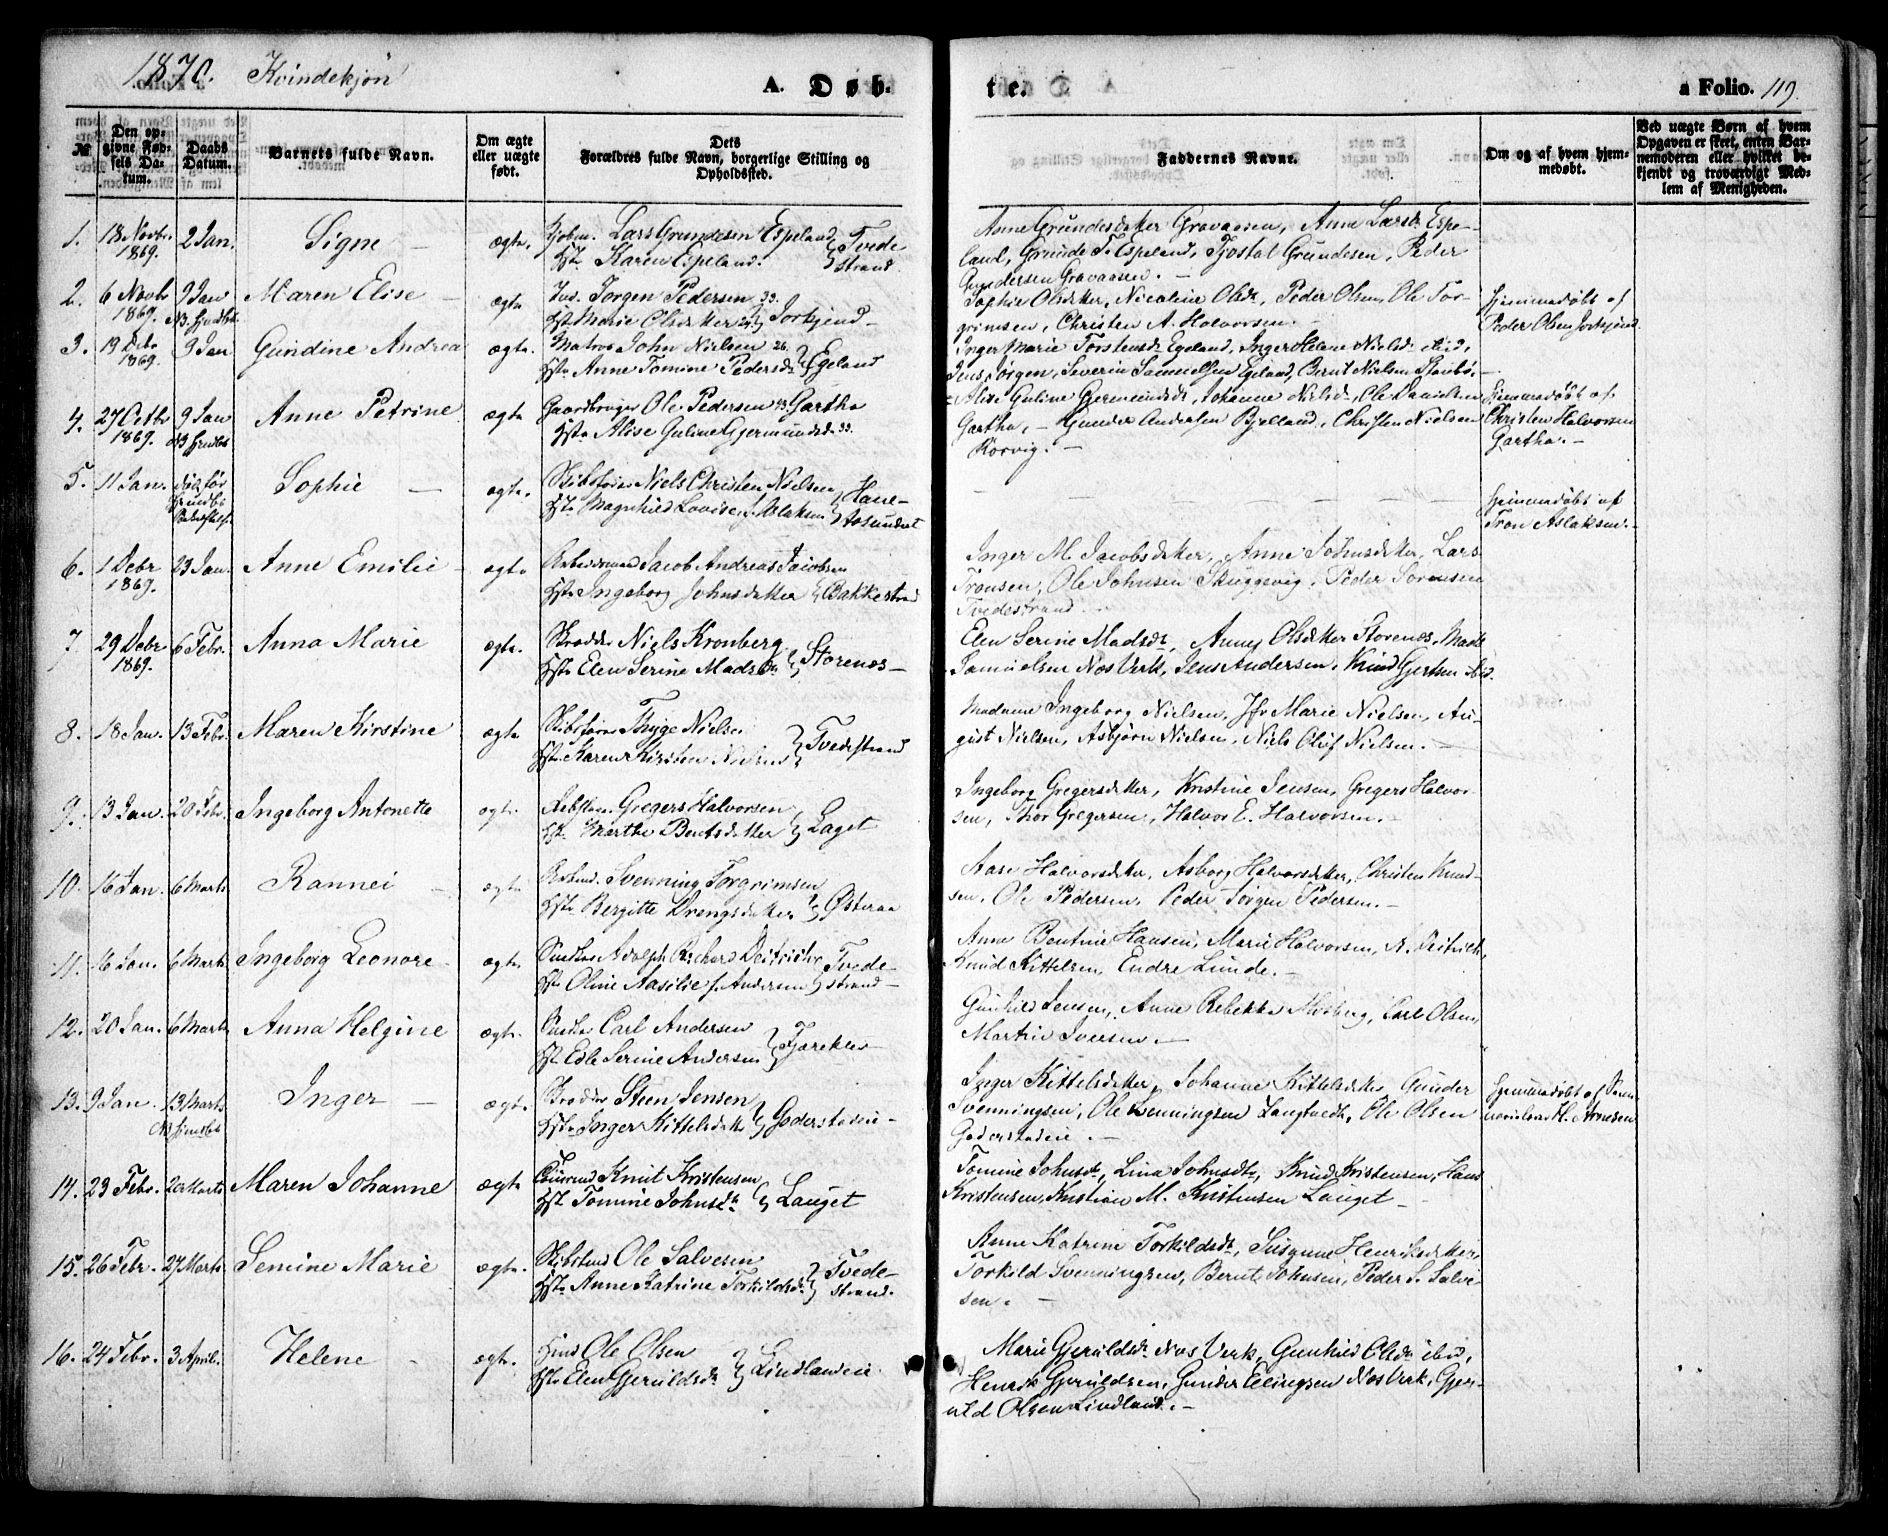 1870. Kvindekjøn
A. Døb-
te.
a Folio. 119.
№
Den opgivne Fødsels Datum.
Daabs Datum.
Barnets fulde Navn.
Om ægte eller uægte født.
Dets Forældres fulde Navn, borgerlige Stilling og Opholdssted.
Faddernes Navne.
Om og af hvem hjemmedøbt.
Ved uægte Børn af hvem Opgaven er skeet, enten Barnemoderen eller hvilket bekjendt og troværdigt Medlem af Menigheden.
1. 18 Novbr. 1869. 2 Jan. Signe – ægte.
Lars Grundesen Espeland
Hst. Karen Espeland. } Tvedestrand.
Anne Grundesdatter Gravaasen, Anne Larsdt. Espe-
land, Grunde T. Espeland, Tjostal Grundesen, Peder
Gundersen Gravaasen. –
2. 6 Novbr 1869. 9 Jan Maren Elise – ægte
Ind. Jørgen Pedersen 33.
Hst. Marie Olsdatter } Torkjend –
Sophie Olsdatter, Nicoline Olsdt, Peder Olsen, Ole Tor-
grimsen, Christen A. Halvorsen. –
Hjemmedøbt af
Peder Olsen
3. 19 Debr 1869. 9 Jan Gundine Andrea ægte.
Matros John Nielsen 26.
Hst. Anne Tomine Pedersdt } Egeland
Inger Marie Torstensdt Egeland, Inger Helene Nielsdt ibid,
Jens Jørgen, Severin Samuelsen Egeland, Bernt Nielsen
4. 27 Octbr 1869. 9 Jan Anne Petrine ægte
Gaardbruger Ole Pedersen 43. Gartha
Hst. Alise Guline Gjermundsdt 33.
Alise Guline Gjermundsdt, Johanne Nielsdt, Ole Danielsen
Gartha, – Gunder Andersen Bjelland, Christen Nielsen
Rørvig. –
Hjemmedøbt af
Christen Halvorsen
Gartha. –
5. 11 Jan. Sophie – ægte
Skibsfører Niels Christen Nielsen
Hst. Magnhild Lovise f. Aslaksen } Hane-
Hjemmedøbt af
Tron Aslaksen. –
6. 1 Debr 1869. 23 Jan. Anne Emilie – ægte
Arbeidsmand Jacob Andreas Jacobsen
Hst. Ingeborg Johnsdatter } Bakkestrand
Inger M. Jacobsdatter, Anne Johnsdatter, Lars
Tronsen, Ole Johnsen Skuggevig, Peder Sørensen
Tvedestrand.
7. 29 Debr 1869. 6 Febr. Anna Marie ægte.
Skrædder Niels Kronberg
Hst. Elen Serine Madsdt. } Storenæs –
Elen Serine Madsdt, Anny Olsdatter Storenæs, Mads
Samuelsen Næs Verk, Jens Andersen, Knud Gjertsen ibid.
8. 18 Jan. 13 Febr. Maren Kirstine ægte
Skibsfører Thyge Nielsen
Hst. Karen Kirsten Nielsen } Tvedestrand
Madame Ingeborg Nielsen, Jfr Marie Nielsen, Au-
gust Nielsen, Asbjørn Nielsen, Niels Oluf Nielsen. –
9. 13 Jan. 20 Febr. Ingeborg Antonette ægte.
Gregers Halvorsen
Hst. Marthe Berntsdatter } Laget
Ingeborg Gregersdatter, Kristine Jensen, Gregers Halvor-
sen, Thor Gregersen, Halvor E. Halvorsen. –
10. 16 Jan 6 Marts Rannei – ægte
Svenning Torgrimsen
Hst. Bergitte Drengsdatter } Østeraa
Aase Halvorsdatter, Asborg Halvorsdatter, Christen Knud-
sen, Ole Pedersen, Peder Jørgen Pedersen. –
11. 16 Jan. 6 Marts Ingeborg Leonore – ægte.
Snedker Adolph Richard Deitrichs
Hst. Oline Aasilie f. Andersen } Tvedestrand –
Anne Bentine Hansen, Marie Halvorsen,
Knud Kittelsen, Endre Lunde. –
12. 20 Jan. 6 Marts Anna Helgine ægte.
Carl Andersen
Hst. Edle Serine Andersen } Fjæreklev
Gunhild Jensen, Anne Rebekka Mosberg, Carl Olsen,
Martin Iversen. –
13. 9 Jan. 13 Marts Inger – ægte.
Skrædder Steen Jensen
Hst. Inger Kittelsdatter } Goderstadeie –
Inger Kittelsdatter, Johanne Kittelsdatter, Gunder
Svenningsen, Ole Svenningsen Langtvedt, Ole Olsen
Goderstadeie. –
Hjemmedøbt af Semi-
H. Arnesen
14. 23 Febr. 20 Marts Maren Johanne ægte
Knut Kristensen
Hst. Tomine Johnsdt } Lauget
Tomine Johnsdt, Lina Johnsdt, Knud Kristensen, Hans
Kristensen, Kristian M. Kristensen Lauget –
15. 26 Febr. 27 Marts Semine Marie ægte.
Ole Salvesen
Hst. Anne Katrine Torkildsdt. } Tvedestrand.
Anne Katrine Torkildsdt, Susanne Henriksdatter,
Torkild Svenningsen, Bernt Johnsen, Peder S. Salve-
sen. –
16. 24 Febr. 3 April. Helene – ægte.
Ole Olsen
Hst. Elen Gjeruldsdt } Lindlandeie
Marie Gjeruldsdt Næs Verk, Gunhild Olsdt ibid,
Henrik Gjeruldsen, Gunder Ellingsen Næs Verk, Gje-
ruld Olsen Lindland. –